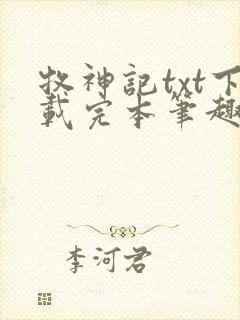 牧神記txt下
載完本筆趣
李河君